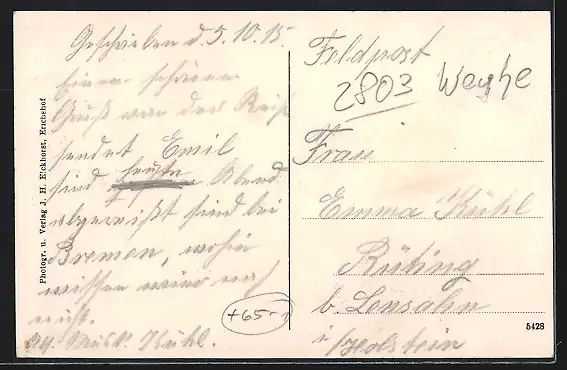 Geschrieben d. 5.10.15.
Einen schönen
Gruß von der Reise
sendet Emil
sind heute Abend
abgereißt sind bei
Bremen, wohin
wissen wir noch
nicht.
Kühl.
+65-
Photogr. u. Verlag J. H. Eickhorst, Erichshof
Feldpost
2803 Weyhe
Frau
Emma Kühl
Rüting
b. Lensahn
i/Holstein
5428